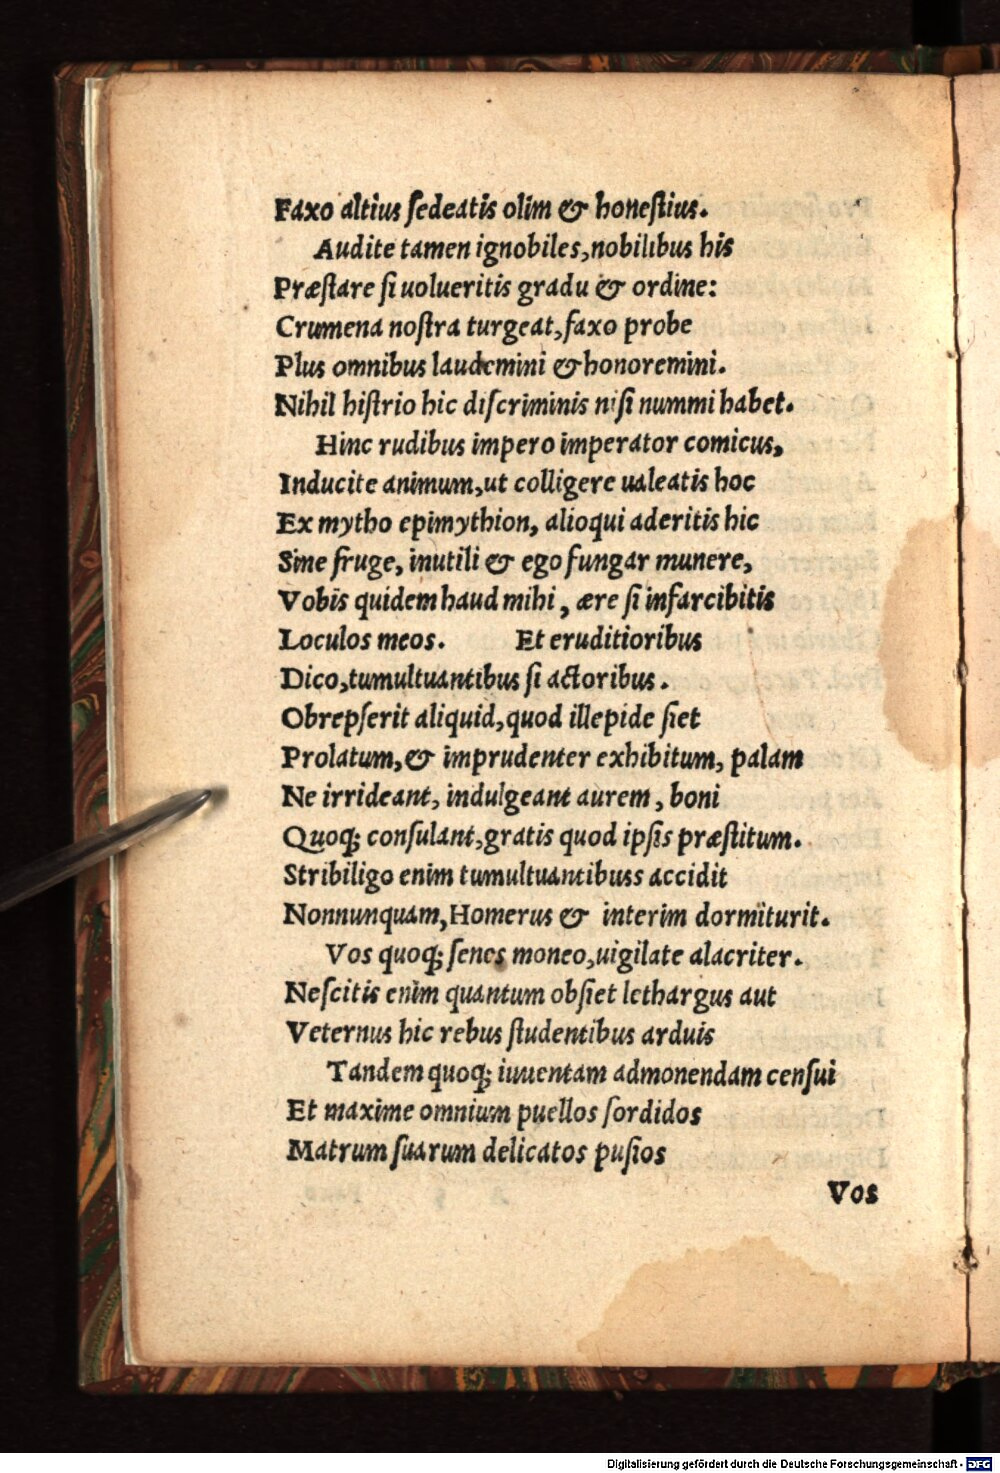 Faxo altius ſedeatis olim & honeſtius.
Audite tamen ignobiles, nobilibus his
Præſtare ſi uolueritis gradu & ordine:
Crumena noſtra turgeat, faxo probe
Plus omnibus laudemini & honoremini.
Nihil hiſtrio hic diſcriminis niſi nummi habet.
Hinc rudibus impero imperator comicus,
Inducite animum, ut colligere ualeatis hoc
Ex mytho epimythion, alioqui aderitis hic
Sine fruge, inutili & ego fungar munere,
Vobis quidem haud mihi, ære ſi infarcibitis
Loculos meos. Et eruditioribus
Dico, tumultuantibus ſi actoribus.
Obrepſerit aliquid, quod illepide ſiet
Prolatum, & imprudenter exhibitum, palam
Ne irrideant, indulgeant aurem, boni
Quoq; conſulant, gratis quod ipſis præſtitum.
Stribiligo enim tumultuantibuss accidit
Nonnunquam, Homerus & interim dormïturit.
Vos quoq; ſenes moneo, uigilate alacriter.
Neſcitis enim quantum obſiet lethargus aut
Veternus hic rebus ſtudentibus arduis
Tandem quoq; iuuentam admonendam cenſui
Et maxime omnium puellos ſordidos
Matrum ſuarum delicatos puſios
Vos
Digitalisierung gefördert durch die Deutsche Forschungsgemeinschaft - DFG